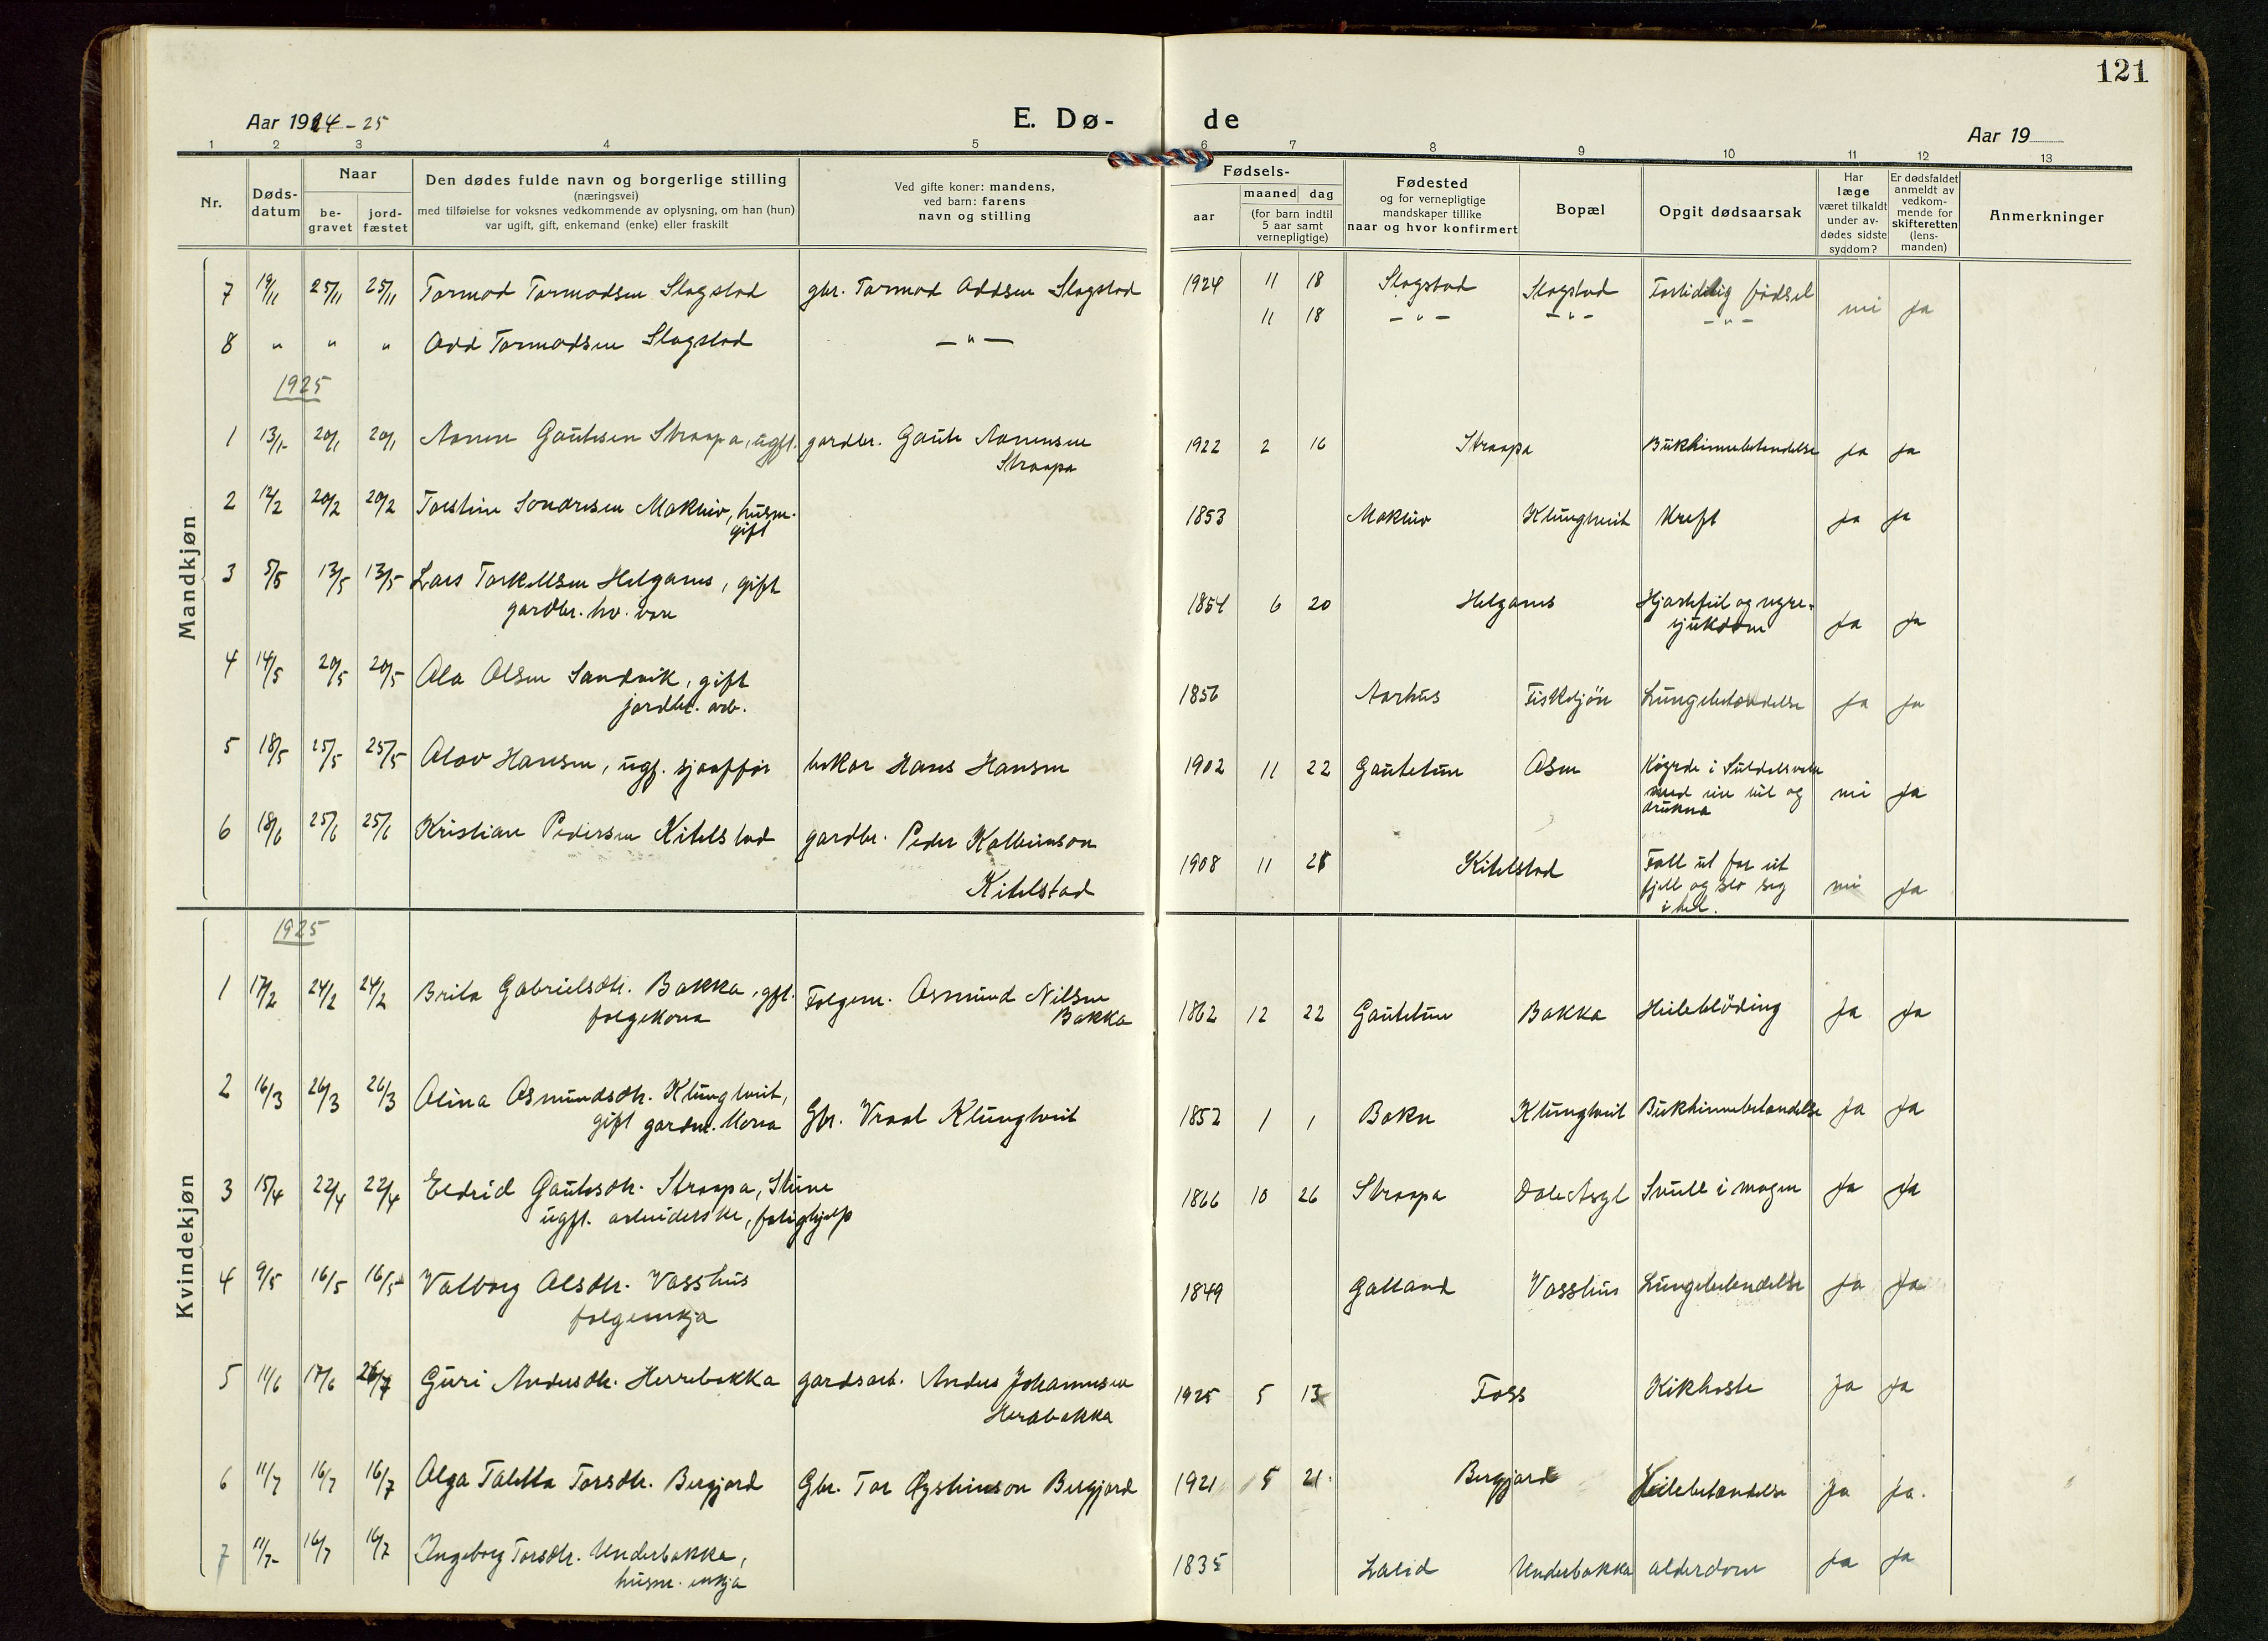 121
Aar 1924-25
E. Dø-
de
Aar 19
1 2 3 4 5 6 7 8 9 10 11 12 13
Nr.
Døds-
datum
Naar
be-
gravet
jord-
fæstet
Den dødes fulde navn og borgerlige stilling
(næringsvei)
med tilføielse for voksnes vedkommende av oplysning, om han (hun)
var ugift, gift, enkemand (enke) eller fraskilt
Ved gifte koner: mandens,
ved barn: farens
navn og stilling
Fødsels-
aar
maaned dag
(for barn indtil
5 aar samt
vernepligtige)
Fødested
og for vernepligtige
mandskaper tillike
naar og hvor konfirmert
Bopæl
Opgit dødsaarsak
Har
læge
været tilkaldt
under av-
dødes sidste
sygdom?
Er dødsfaldet
anmeldt av
vedkom-
mende for
skifteretten
(lens-
manden)
Anmerkninger
Mandkjøn
7 19/11 25/11 25/11 Tormod Tormodsen Slogstad gbr. Tormod Oddsen Slogstad 1924 11 18 Slogstad Slogstad Fortidelig fødsel nei ja
8 " " " Odd Tormodsen Slogstad — " — 11 18 — " — — " — — " —
1925
1 13/1 20/1 20/1 Aanen Gautesen Straapa, ugft. gardbr. Gaute Aanensen
Straapa
1922 2 16 Straapa Bukhinnebetendelse ja ja
2 12/2 20/2 20/2 Torstein Sondresen Mokleiv, husm.
gift
1853 Mokleiv Klungtveit Kreft ja ja
3 5/5 13/5 13/5 Lars Torkellsen Helganes, gift
gardbr. hv. vore
1854 6 20 Helganes Hjartefeil og nyre-
sjukdom
ja ja
4 14/5 20/5 20/5 Ola Olsen Sandvik, gift
jordbr. arb.
1856 Aarhus Fisketjön Lungebetændelse ja ja
5 18/5 25/5 25/5 Olav Hansen, ugf. sjaaffør bekar Hans Hansen 1902 11 22 Gautetun Osen Köyrde i Suldalsvatn
med ein bil og
drukna
nei ja
6 18/6 25/6 25/6 Kristian Pedersen Kitelstad gardbr. Peder Kolbeinson
Kitelstad
1908 11 28 Kitelstad Fall ut for eit
fjell og slo seg
i hel.
nei ja
Kvindekjøn
1925
1 17/2 24/2 24/2 Brita Gabrielsdtr. Bakka, gft.
folgekona
Folgem. Osmund Nilsen
Bakka
1862 12 22 Gautetun Bakka Heileblöding Ja Ja
2 16/3 26/3 26/3 Olina Osmundsdtr. Klungtveit,
gift gardm. kona
Gbr. Vraal Klungtveit
1852 1 1 Bokn Klungtveit Bukhinnebetændelse Ja Ja
3 15/4 22/4 22/4 Eldrid Gautesdtr. Straapa, Stene
ugft. arbeiderske, fatighjelp
1866 10 26 Straapa Dale Asyl Svull i magen Ja Ja
4 9/5 16/5 16/5 Valborg Olsdtr. Vasshus
folgeenkja
1849 Galland Vasshus Lungebetendelse Ja Ja
5 11/6 17/6 26/7 Guri Andersdtr. Herrebakka gardsarb. Anders Johannesen
Herabakka
1925 5 13 Foss Kikhoste Ja Ja
6 11/7 16/7 16/7 Olga Taletta Torsdtr. Bergjord Gbr. Tor Øysteinson Bergjord 1921 5 21 Bergjord Heilebetændelse Ja Ja.
7 11/7 16/7 16/7 Ingeborg Torsdtr. Underbakka,
husm. enkja
1835 Lalid Underbakka alderdom Ja Ja